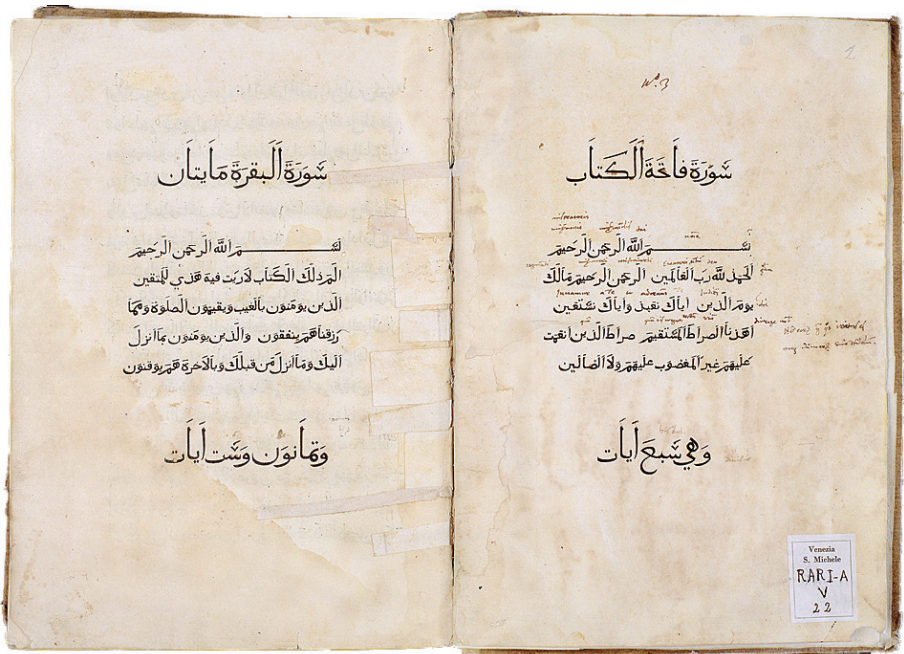 Nº. 3
سورة فاتحة الكتاب
بسم الله الرحمن الرحيم
الحمد لله رب العالمين الرحمن الرحيم مالك
يوم الدين اياك نعبد واياك نستعين
اهدنا الصراط المستقيم صراط الذين انعمت
عليهم غير المغضوب عليهم ولا الضالين
وهي سبع ايات
Venezia
S. Michele
RARI-A
V
22
سورة البقرة مايتان
بسم الله الرحمن الرحيم
الم ذلك الكتاب لا ريب فيه هدي للمتقين
الذين يومنون بالغيب ويقيمون الصلوة ومما
رزقناهم ينفقون والذين يومنون بما انزل
اليك وما انزل من قبلك وبالاخرة هم يوقنون
وثمانون وست ايات